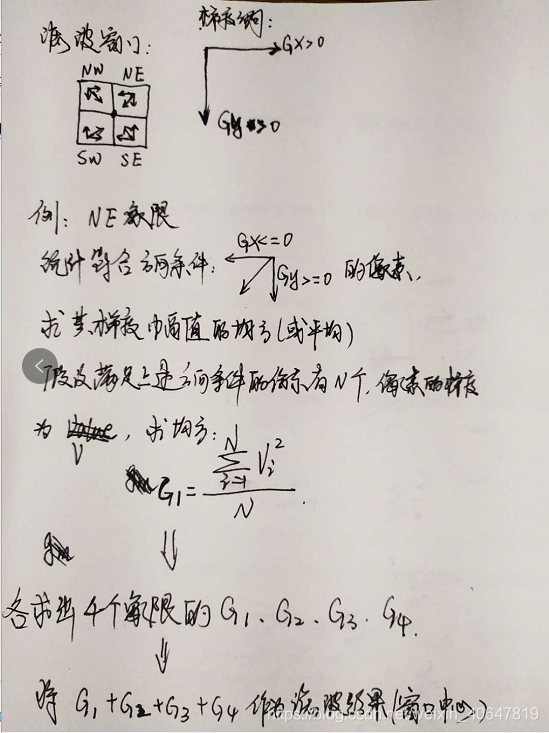 滤波窗口:
梯度方向:
Gx>0
NW NE
Gy>0
SW SE
例: NE象限
统计符合方向条件: Gx<=0 Gy>=0 的像素,
求其梯度中幅值的均方(或平均)
假设满足上述方向条件的像素有N个, 像素的梯度
为 V, 求均方:
G1 = \frac{\sum_{i=1}^{N} V_i^2}{N}
各求出4个象限的 G1、G2、G3、G4.
将 G1+G2+G3+G4 作为滤波结果(窗口中心)
https://blog.csdn.net/weixin_40647819